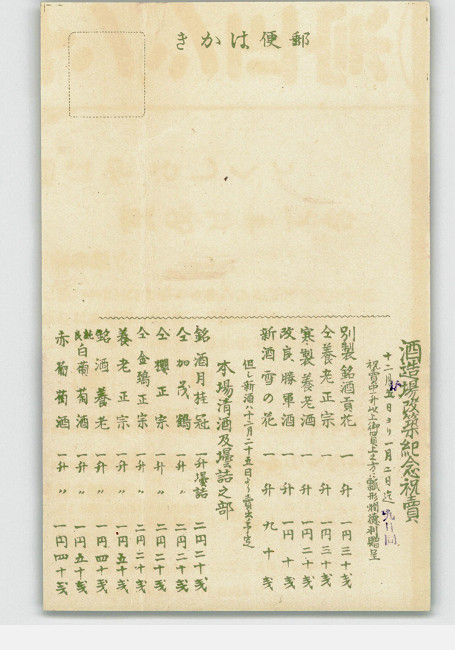 きかは便郵
酒造場改築紀念祝賣
十二月五日ヨリ一月二日迄
祝賣中一升以上御買上之方ニ瓢形燗徳利贈呈
別製銘酒貢花 一升 一円三十戔
仝養老正宗 一升 一円三十戔
寒製養老酒 一升 一円二十戔
改良勝軍酒 一升 一円十戔
新酒雪の花 一升 九十戔
但し新酒ハ十二月二十五日より賣出す予定
本場清酒及壜詰之部
銘酒月桂冠 一升壜詰 二円二十戔
仝加茂鶴 一升〃 二円二十戔
仝櫻正宗 一升〃 二円二十戔
仝金鵄正宗 一升〃 二円二十戔
養老正宗 一升〃 一円五十戔
銘酒養老 一升〃 一円四十戔
白葡萄酒 一升〃 一円五十戔
赤葡萄酒 一升〃 一円四十戔